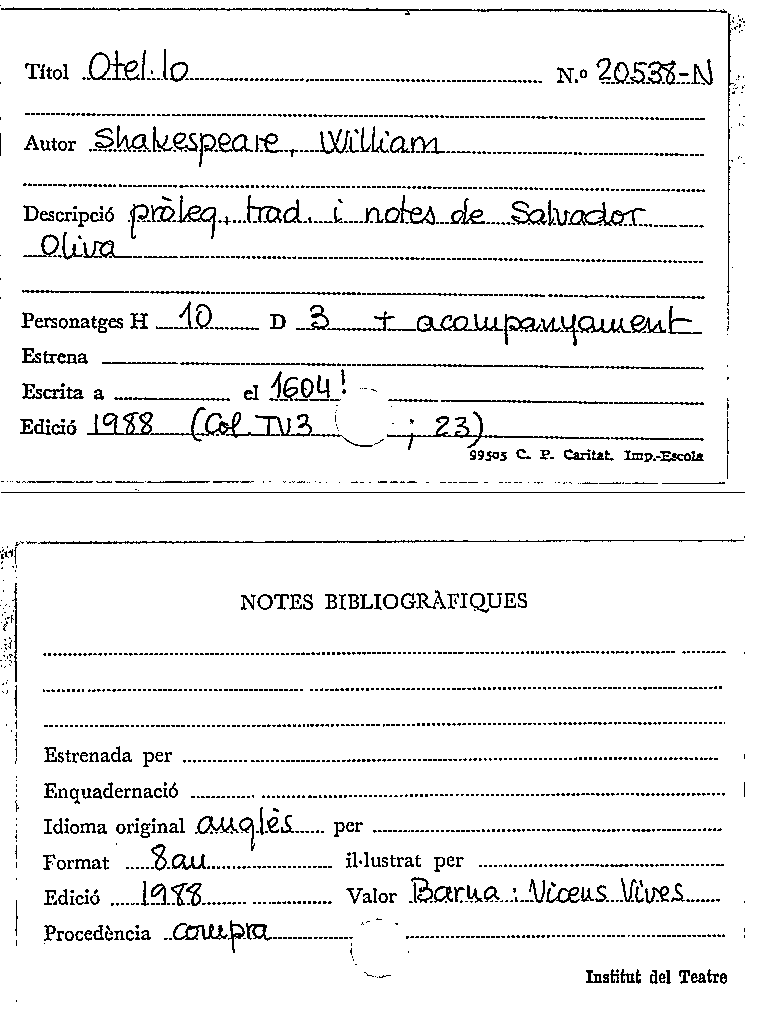 Títol Otel·lo N.º 20538-N
Autor Shakespeare, William
Descripció pròleg, trad. i notes de Salvador
Oliva
Personatges H 10 D 3 + acompanyament
Estrena
Escrita a el 1604!
Edició 1988 (Col. TV3 ; 23)
99505 C. P. Caritat. Imp.-Escola
NOTES BIBLIOGRÀFIQUES
Estrenada per
Enquadernació
Idioma original anglès per
Format 8au il·lustrat per
Edició 1988 Valor Barna : Vicens Vives
Procedència compra
Institut del Teatre